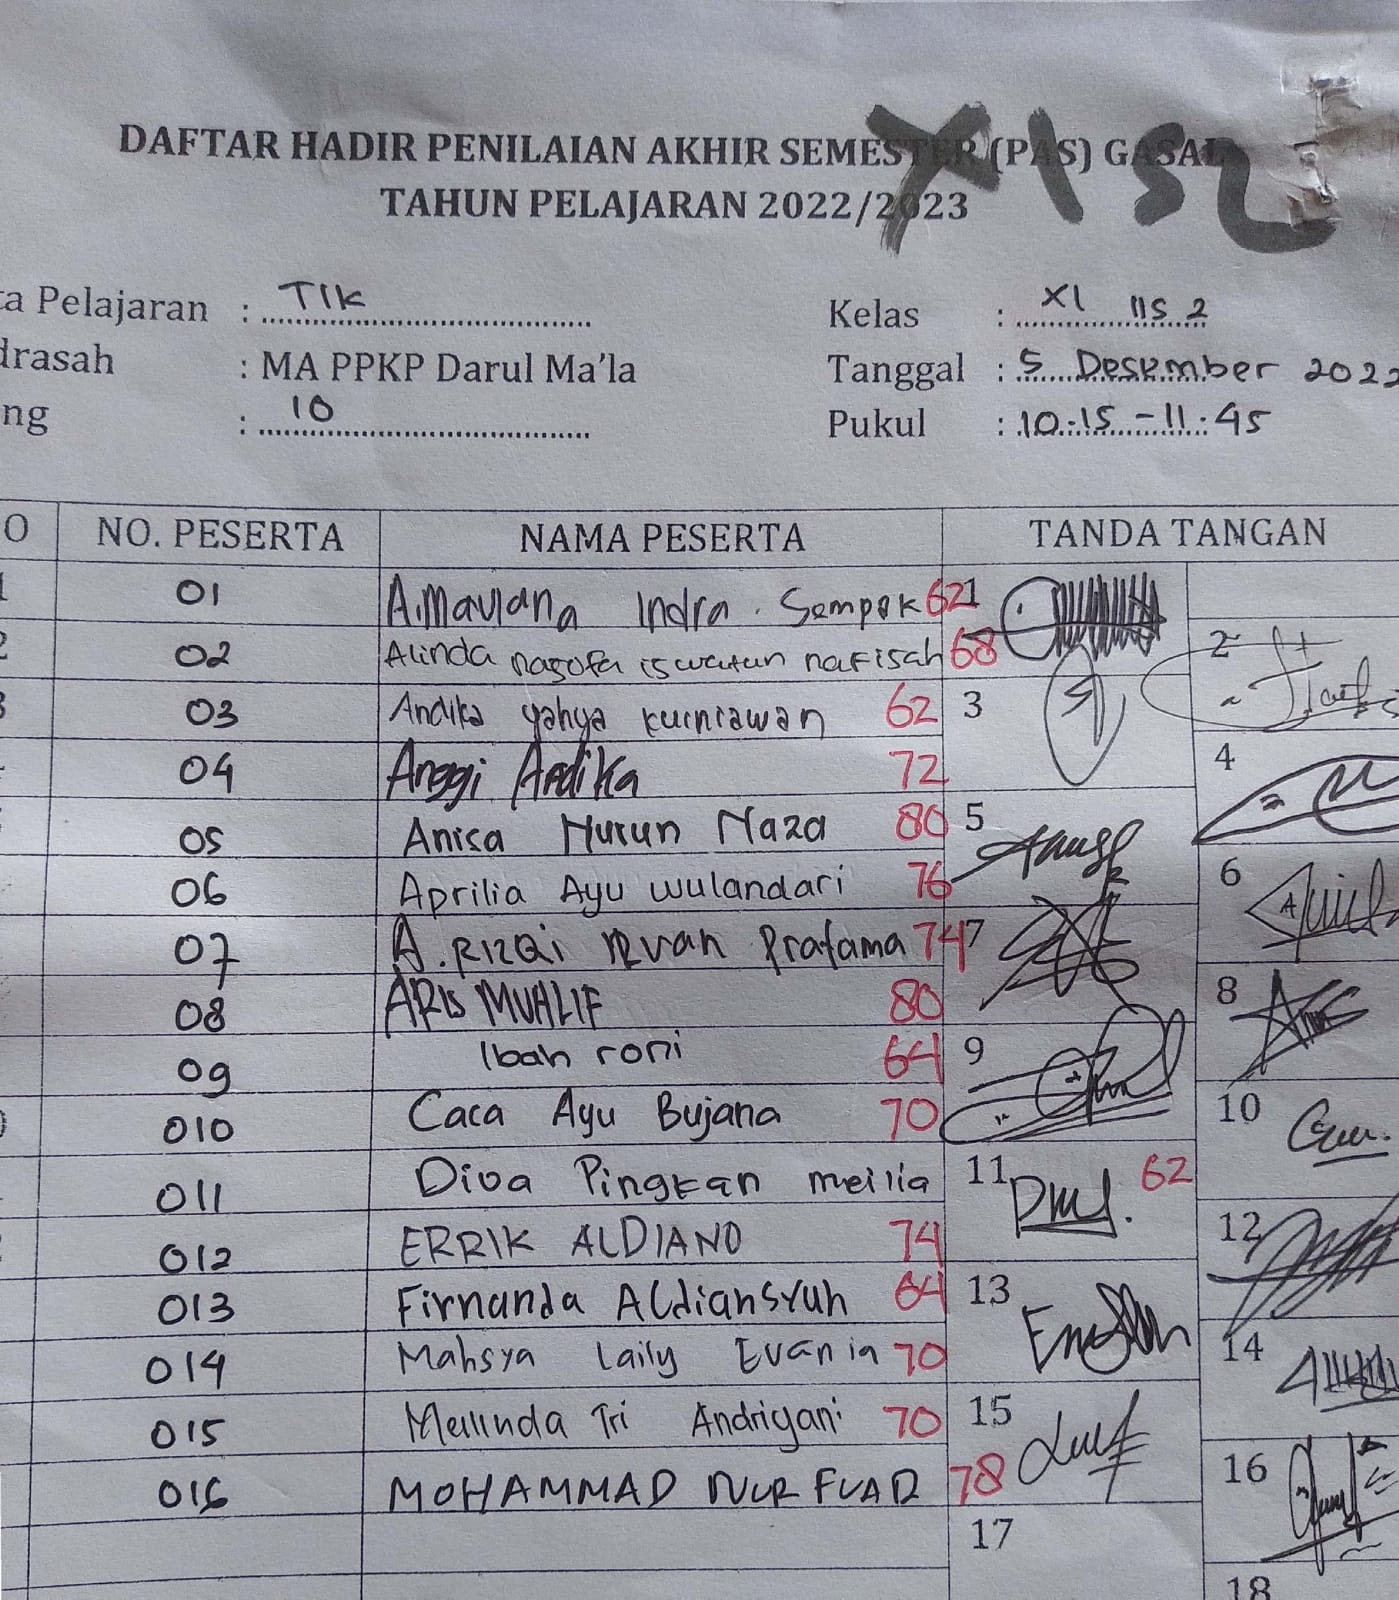 XIS2
DAFTAR HADIR PENILAIAN AKHIR SEMESTER (PAS) GASAL
TAHUN PELAJARAN 2022/2023
ta Pelajaran : TIK Kelas : XI IIS 2
drasah : MA PPKP Darul Ma'la Tanggal : 5 Desember 2022
ng : 10 Pukul : 10:15 - 11:45
O NO. PESERTA NAMA PESERTA TANDA TANGAN
1 01 A.Maulana Indra . 62 1
2 02 Alinda iswatun nafisah 68 2
3 03 Andika yahya kurniawan 62 3
04 Anggi Andika 72 4
05 Anisa Nurun Naza 80 5
06 Aprilia Ayu wulandari 76 6
07 A.RIZQi Pratama 74 7
08 ARIS MUALIF 80 8
09 Ibah roni 64 9
010 Caca Ayu Bujana 70 10
011 Diva Pingkan meilia 11 62
012 ERRIK ALDIANO 74 12
013 Firnanda ALdiansyah 64 13
014 Mahsya Laily Evania 70 14
015 Melinda Tri Andriyani 70 15
016 MOHAMMAD NUR FUAD 78 16
17
18